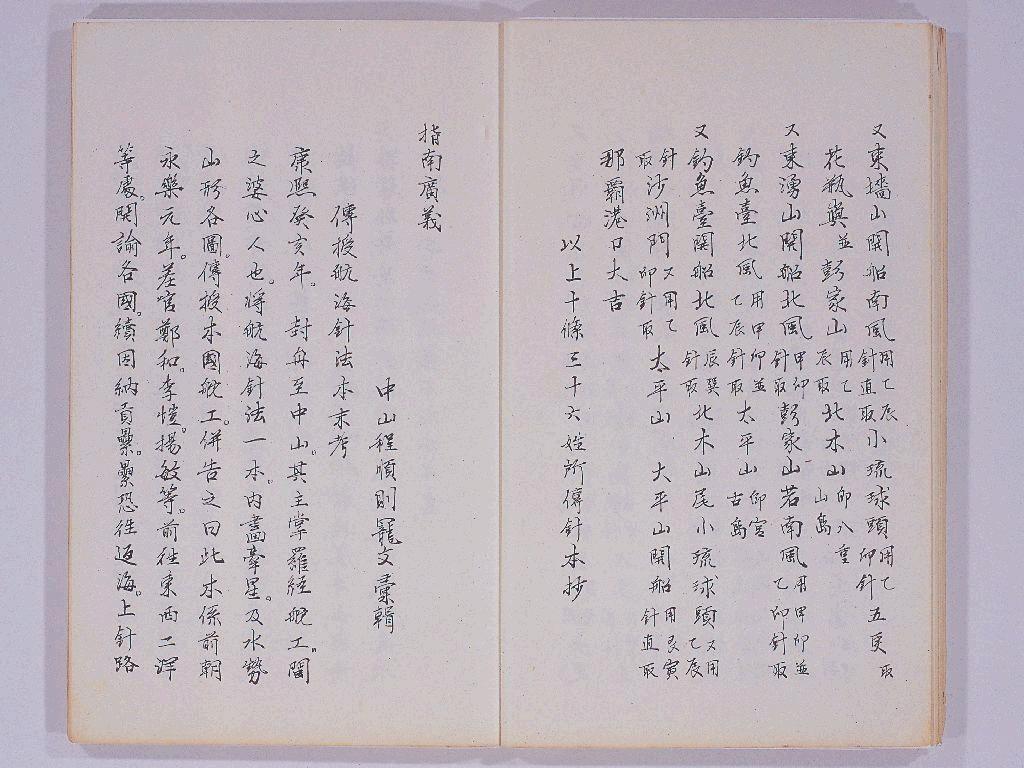 又東墻山開船南風用乙辰針直取小琉球頭用乙卯針五更取
花瓶嶼並彭家山用乙辰取北木山卽八重山島
又東湧山開船北風甲卯針取彭家山若南風用甲卯並乙卯針取
釣魚臺北風用甲卯並乙辰針取太平山卽宮古島
又釣魚臺開船北風辰巽針取北木山尾小琉球頭又用乙辰
針取沙洲門又用乙卯針取太平山 大平山開船用艮寅針直取
那霸港口大吉
以上十條三十六姓所傳針本抄
指南廣義
中山程順則寵文彙輯
傳授航海針法本末考
康熙癸亥年。封舟至中山。其主掌羅經舵工。閩
之婆心人也。將航海針法一本。內畫牽星。及水勢
山形各圖。傳授本國舵工。併告之曰此本係前朝
永樂元年。差官鄭和。李愷。揚敏等。前往東西二洋
等處。開諭各國。續因納貢纍。纍恐往返海。上針路